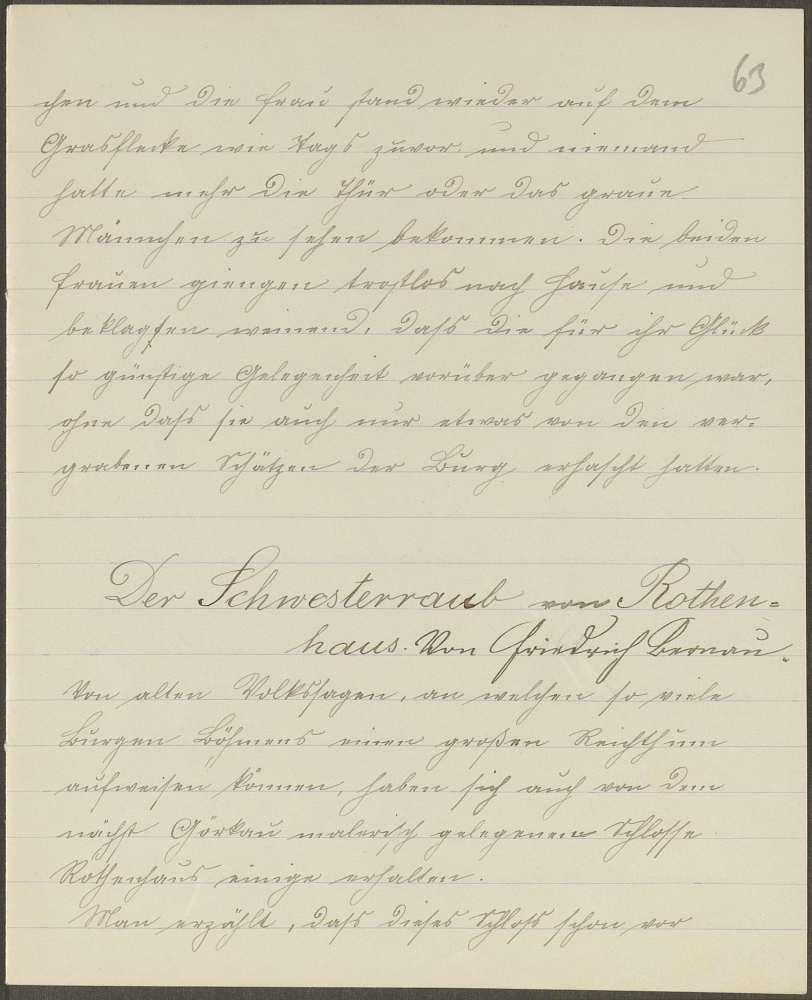 63
chen und die Frau stand wieder auf dem
Grasflecke wie Tags zuvor und niemand
hatte mehr die Thür oder das graue
Männchen zu sehen bekommen. Die beiden
Frauen giengen trostlos nach Hause und
beklagten weinend, dass die für ihr Glück
so günstige Gelegenheit vorüber gegangen war,
ohne dass sie auch nur etwas von den ver-
grabenen Schätzen der Burg erhascht hatten.
Der Schwesterraub von Rothen=
haus. Von Friedrich Bernau.
Von alten Volkssagen, an welchen so viele
Burgen Böhmens einen großen Reichthum
aufweisen können, haben sich auch von dem
nächst Görkau malerisch gelegenen Schlosse
Rothenhaus einige erhalten.
Man erzählt, dass dieses Schloss schon vor